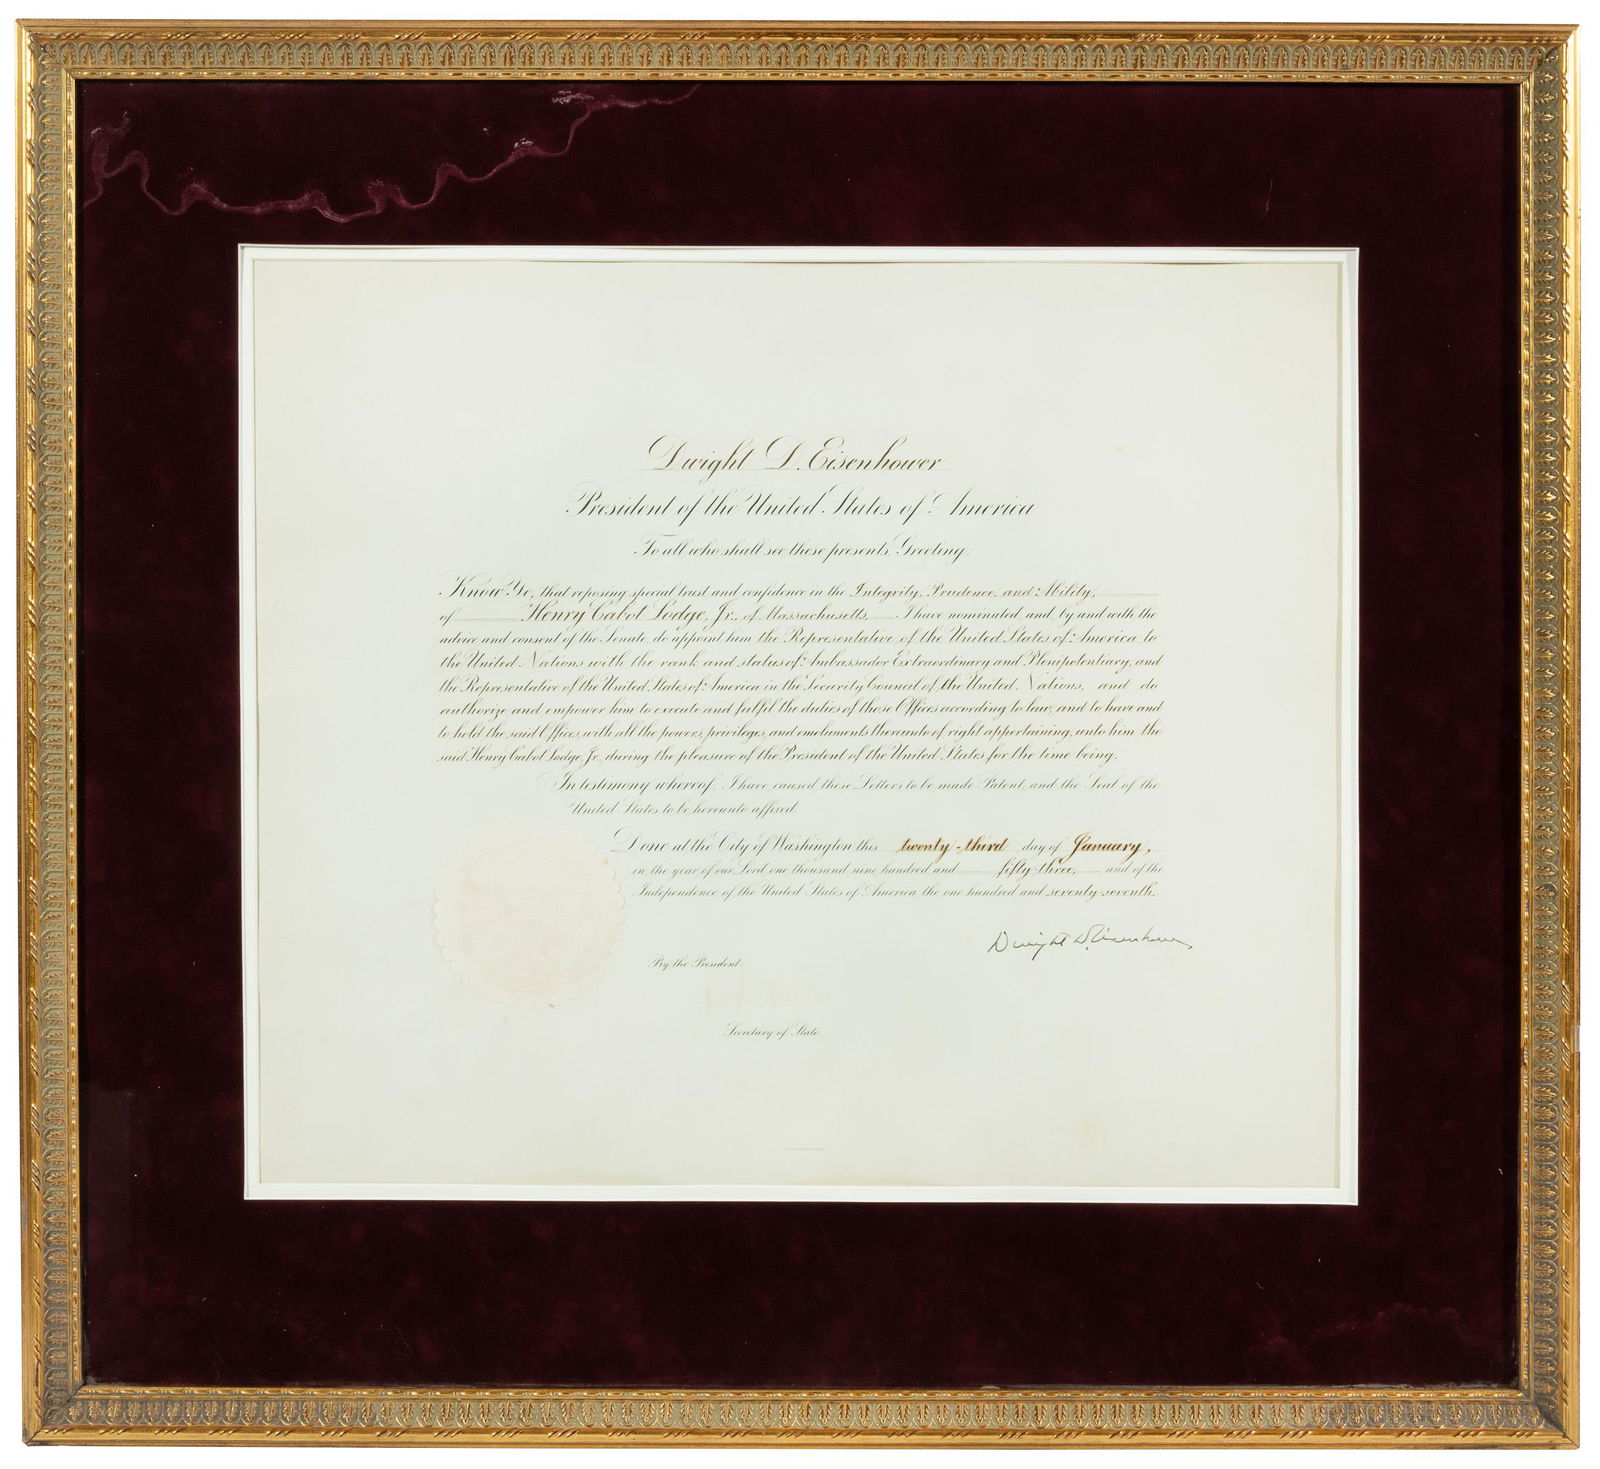 Dwight D. Eisenhower
President of the United States of America
To all who shall see these presents, Greeting:
Know Ye, that reposing special trust and confidence in the Integrity, Prudence, and Ability,
of Henry Cabot Lodge, Jr., of Massachusetts, I have nominated and, by and with the
advice and consent of the Senate, do appoint him the Representative of the United States of America to
the United Nations with the rank and status of Ambassador Extraordinary and Plenipotentiary, and
the Representative of the United States of America in the Security Council of the United Nations, and do
authorize and empower him to execute and fulfil the duties of those Offices according to law, and to have and
to hold the said Offices, with all the powers, privileges, and emoluments thereunto of right appertaining, unto him the
said Henry Cabot Lodge, Jr., during the pleasure of the President of the United States for the time being.
In testimony whereof, I have caused these Letters to be made Patent, and the Seal of the
United States to be hereunto affixed.
Done at the City of Washington this twenty-third day of January,
in the year of our Lord one thousand nine hundred and fifty-three, and of the
Independence of the United States of America the one hundred and seventy-seventh.
Dwight D. Eisenhower
By the President:
Secretary of State.